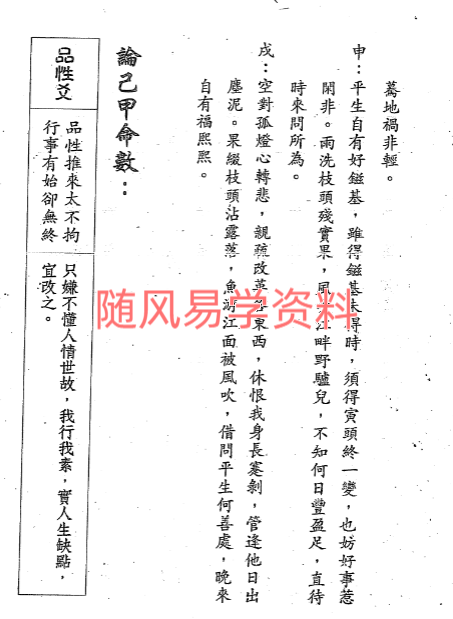 驀地禍非輕。
申：平生自有好鎡基，雖得鎡基未得時，須得寅頭終一變，也妨好事惹
閑非。雨洗枝頭殘實果，風江畔野驢兒，不知何日豐盈足，直待
時來問所為。
戌：空對孤燈心轉悲，親疏改革各東西，休恨我身長蹇剝，管逢他日出
塵泥。果綴枝頭沾露落，魚游江面被風吹，借問平生何善處，晚來
自有福熙熙。
論己甲命數：
品性爻
品性推來太不拘
行事有始卻無終
只嫌不懂人情世故，我行我素，實人生缺點，
宜改之。
随风易学资料